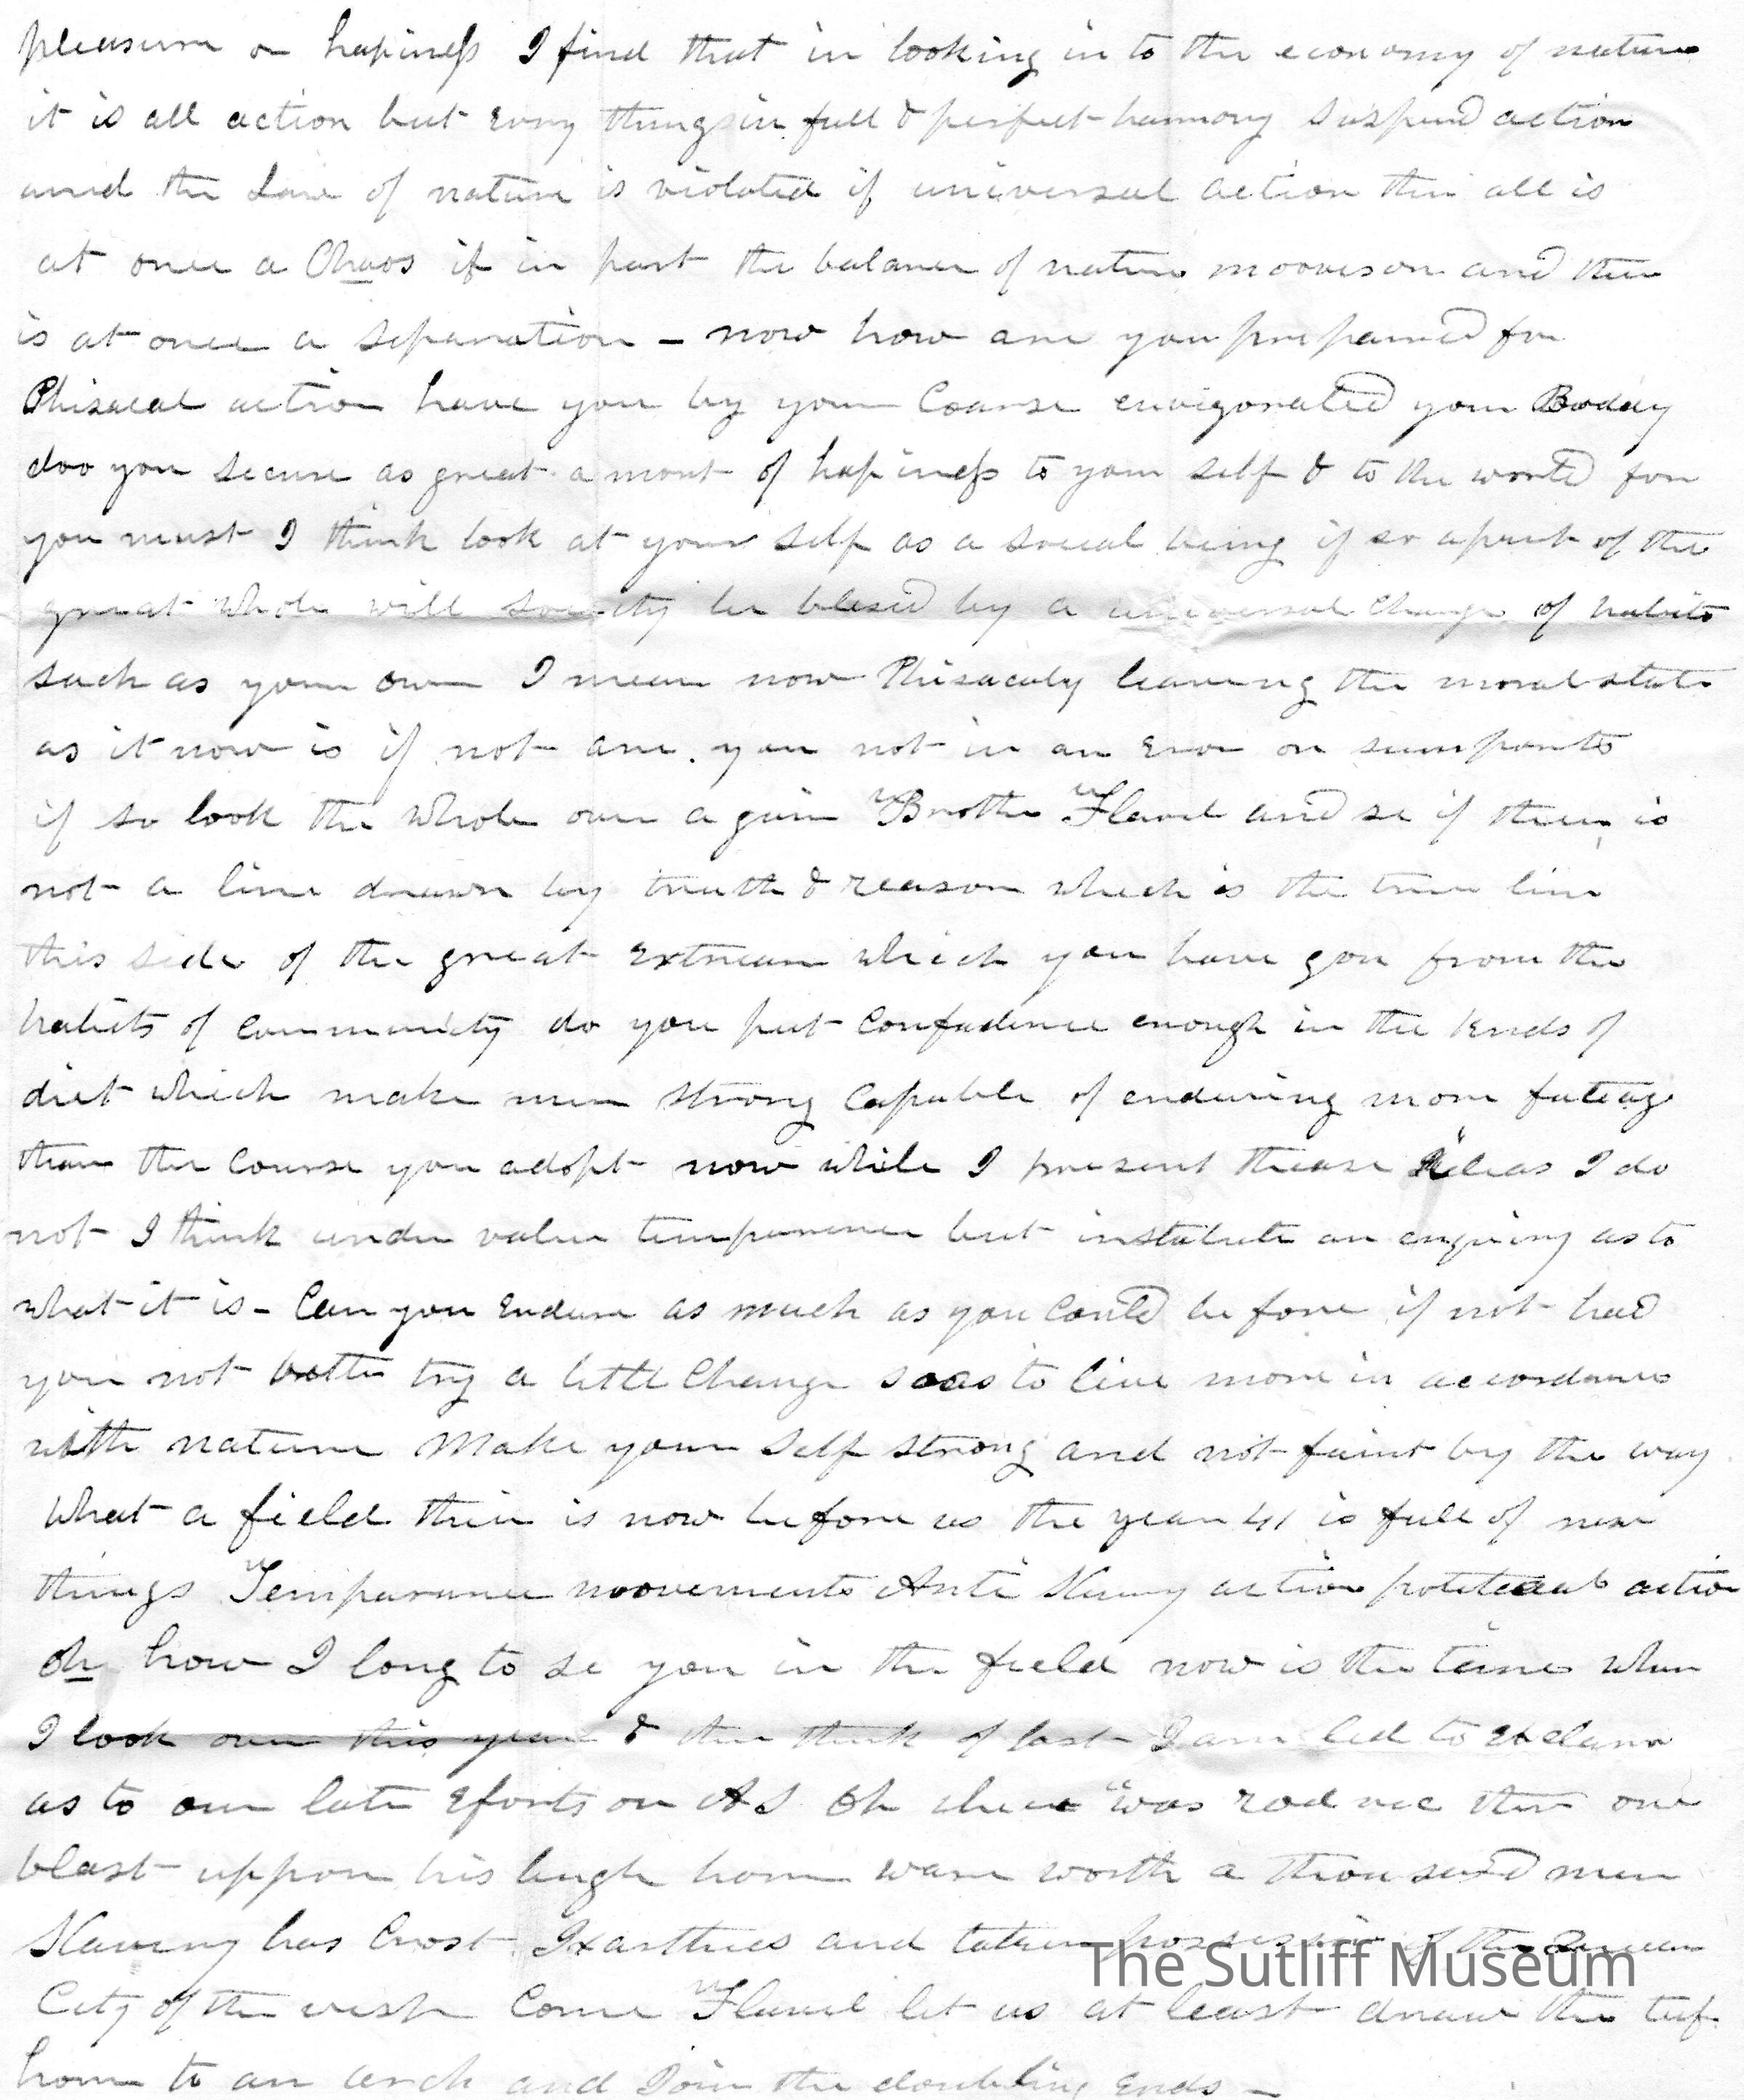 pleasure or hapiness I find that in looking in to the economy of nature
it is all action but Evry thing in full & perfect harmony Suspend action
and the Law of nature is violated if universal action then all is
at once a Chaos if in part the balance of nature mooves on and ther
is at once a Separation – now how are you prepared for
Phisacal action have you by your Coarse envigorated your Boday
doo you secure as great amont of hapiness to your self & to the world for
you must I think look at your self as a social being if so a part of the
great whole will society be blesed by a universal change of habits
such as your own I mean now Phisacaly leaving the moral state
as it now is if not are you not in an Eror on sum points
if so look the whole over a gain Brother Flavel and se if there is
not a line drawn by truth & reason which is the true line
this side of the great Extream which you have gon from the
habits of community do you put confadence enough in the kinds of
diet which make men strong capable of enduring more fateag
than the course you adopt now while I present thease Ideas I do
not I think under value temparance but instatute an enquiry as to
what it is – Can you Endure as much as you Could be fore if not had
you not better try a little Change so as to live more in accordance
with nature Make your Self strong and not faint by the way
What a field their is now before us the year 41 is full of new
things Temparance moovements Anti Slavery action politicaal action
Oh how I long to se you in the field now is the time when
I look over this year & then think of last I am led to Exclame
as to our late Eforts on A S Oh "was then one
blast uppon his bugle horn ware worth a thousand men
Slavery has Crost and taken possession of the Queen
City of the west Come Flavel let us at least draw the
horn to an arch and Join the doubling Ends –
The Sutliff Museum